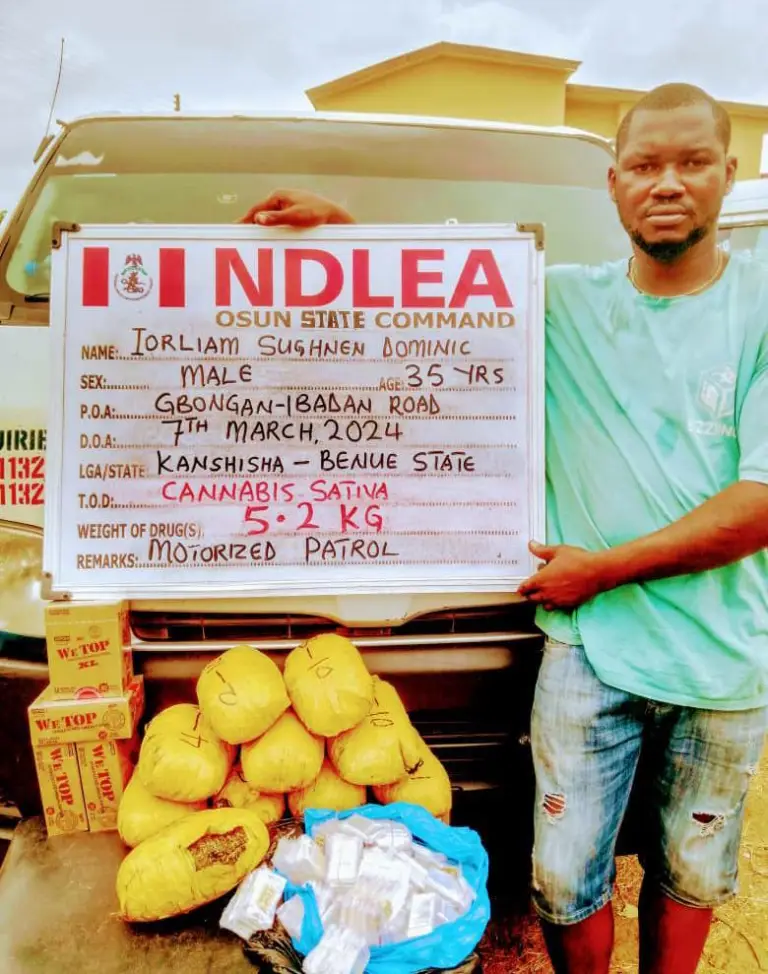 NDLEA
OSUN STATE COMMAND
NAME: IORLIAM SUGHNEN DOMINIC
SEX: MALE AGE: 35 YRS
P.O.A: GBONGAN-IBADAN ROAD
D.O.A: 7TH MARCH, 2024
LGA/STATE KANSHISHA - BENUE STATE
T.O.D: CANNABIS SATIVA
WEIGHT OF DRUG(S) 5.2 KG
REMARKS: MOTORIZED PATROL
UIRIE
1132
1132
WE TOP
XL
WE TOP
WE TOP
WE TOP
2
10
4
10